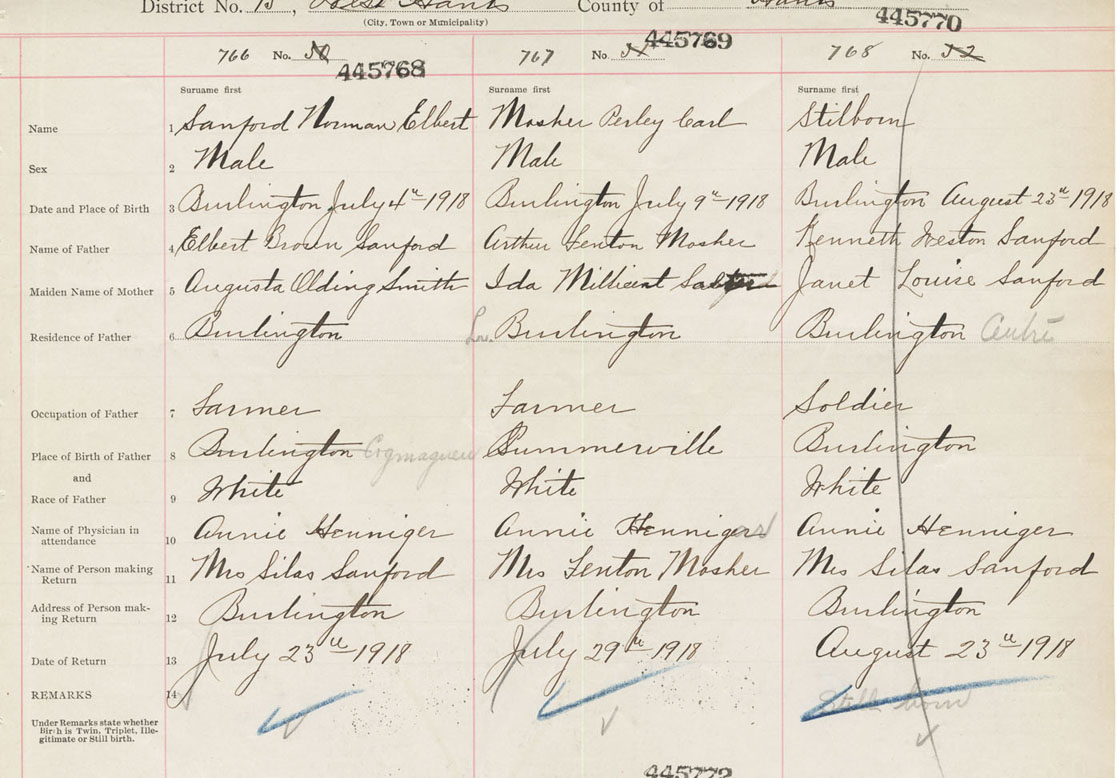 District No. 13, West Hants County of Hants
(City, Town or Municipality)
445770
766 No. 50 767 No 51 445769 768 No. 52
445768
Surname first Surname first Surname first
Name 1 Sanford Norman Elbert Mosher Perley Carl Stilborn
Sex 2 Male Male Male
Date and Place of Birth 3 Burlington July 4th 1918 Burlington July 9th 1918 Burlington August 23rd 1918
Name of Father 4 Elbert Brown Sanford Arthur Fenton Mosher Kenneth Weston Sanford
Maiden Name of Mother 5 Augusta Olding Smith Ida Millicent Janet Louise Sanford
Residence of Father 6 Burlington Burlington Burlington Centre
Occupation of Father 7 Farmer Farmer Soldier
Place of Birth of Father 8 Burlington Summerville Burlington
and
Race of Father 9 White White White
Name of Physician in
attendance 10 Annie Henniger Annie Henniger Annie Henniger
Name of Person making
Return 11 Mrs Silas Sanford Mrs Fenton Mosher Mrs Silas Sanford
Address of Person mak-
ing Return 12 Burlington Burlington Burlington
Date of Return 13 July 23rd 1918 July 29th 1918 August 23rd 1918
REMARKS 14 Still born
Under Remarks state whether
Birth is Twin, Triplet, Ille-
gitimate or Still birth.
445772